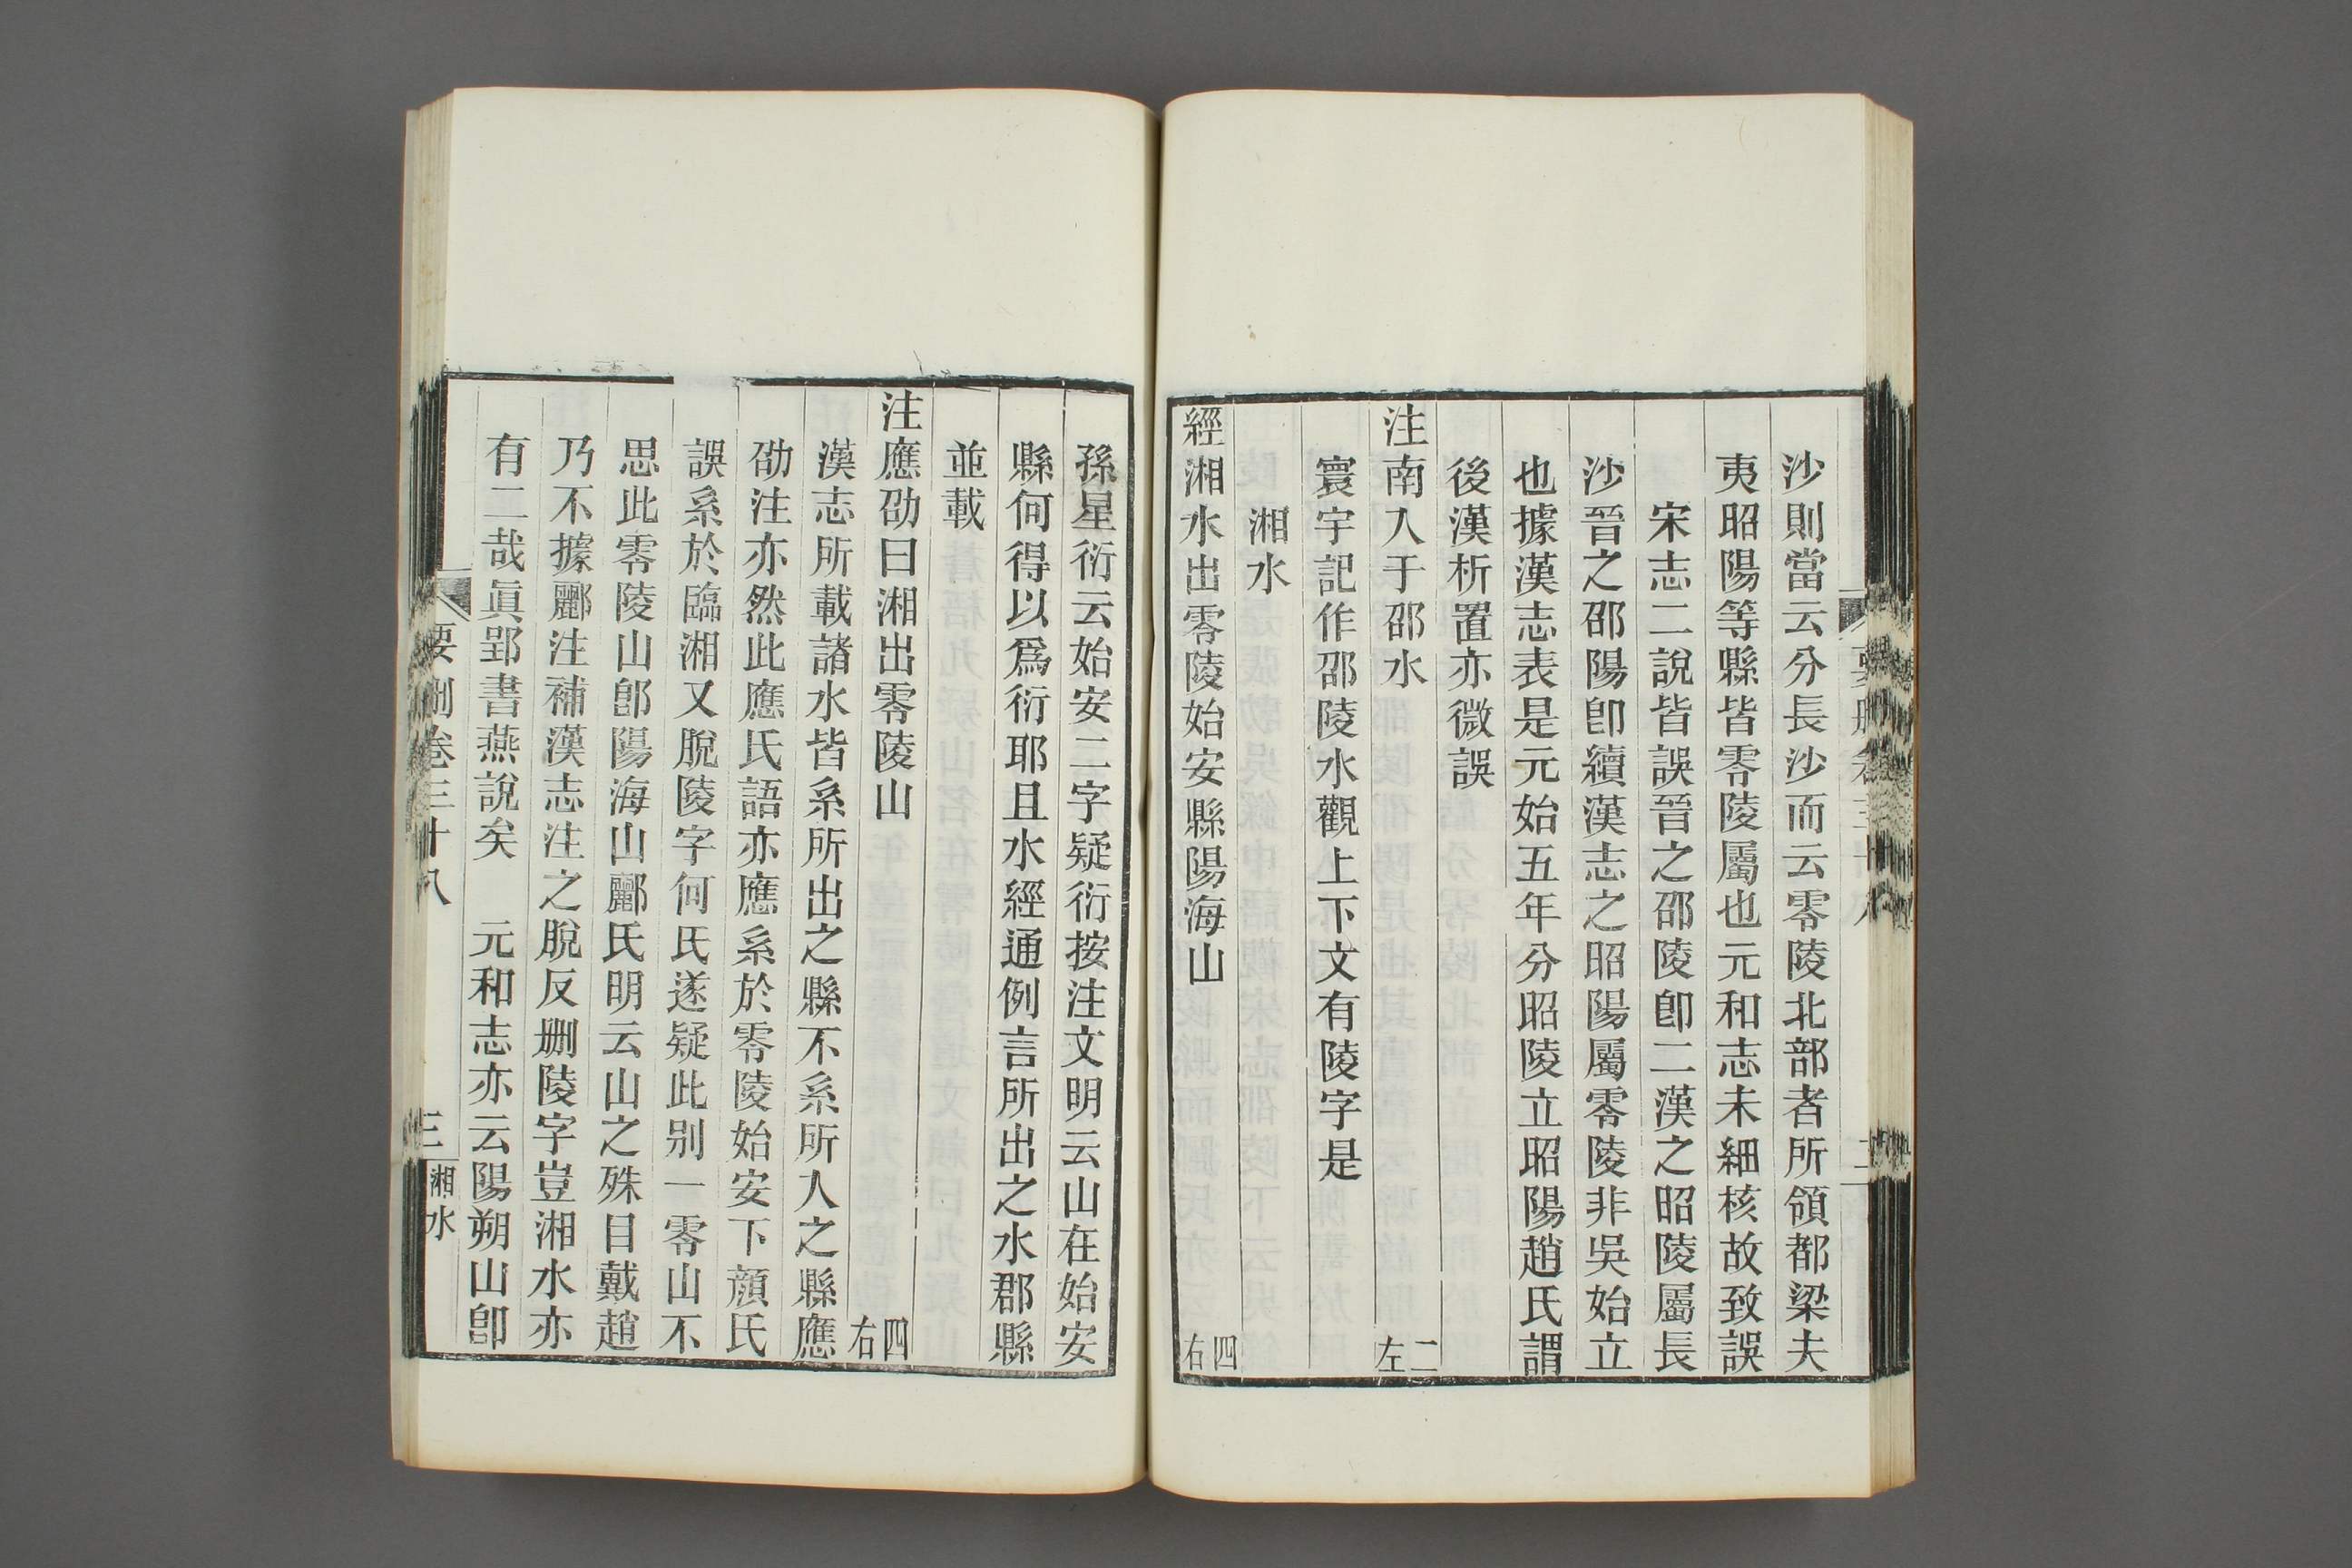 沙則當云分長沙而云零陵北部者所領都梁夫
夷昭陽等縣皆零陵屬也元和志未細核故致誤
宋志二說皆誤晉之邵陵卽二漢之昭陵屬長
沙晉之邵陽卽續漢志之昭陽屬零陵非吳始立
也據漢志表是元始五年分昭陵立昭陽趙氏謂
後漢析置亦微誤
注南入于邵水 二左
寰宇記作邵陵水觀上下文有陵字是
湘水
經湘水出零陵始安縣陽海山 四右
孫星衍云始安二字疑衍按注文明云山在始安
縣何得以爲衍耶且水經通例言所出之水郡縣
並載
注應劭曰湘出零陵山 四右
漢志所載諸水皆系所出之縣不系所入之縣應
劭注亦然此應氏語亦應系於零陵始安下顏氏
誤系於臨湘又脫陵字何氏遂疑此別一零山不
思此零陵山卽陽海山酈氏明云山之殊目戴趙
乃不據酈注補漢志注之脫反刪陵字豈湘水亦
有二哉眞郢書燕說矣　元和志亦云陽朔山卽
要刪卷三十八 三 湘水